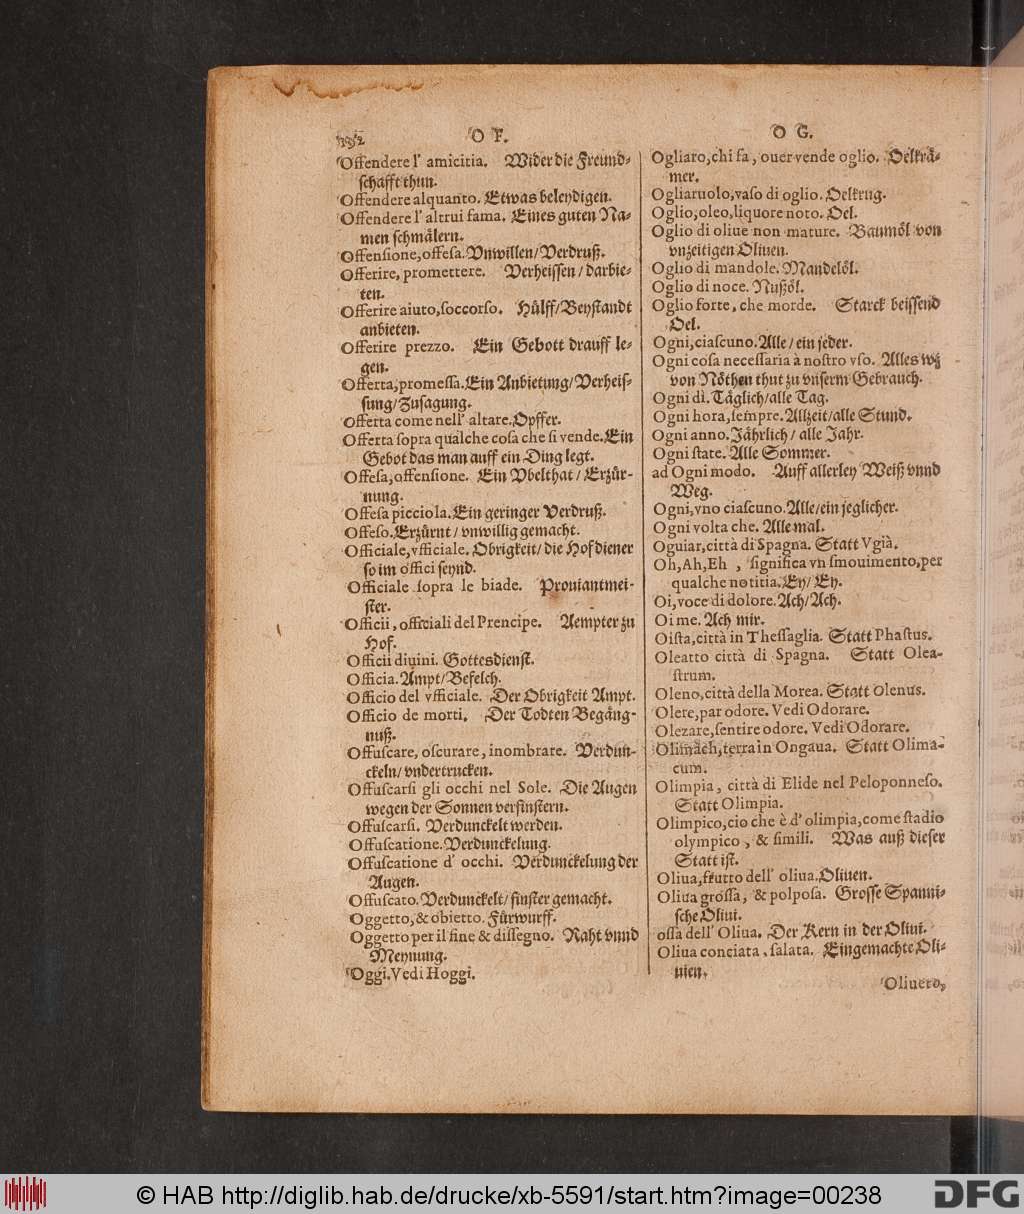 O F.
Offendere l' amicitia. Wider die Freund-
schafft thun.
Offendere alquanto. Etwas beleydigen.
Offendere l' altrui fama. Eines guten Na-
men schmälern.
Offensione, offesa. Vnwillen/ Verdruß.
Offerire, promettere. Verheissen/ darbie-
ten.
Offerire aiuto, soccorso. Hülff/ Beystandt
anbieten.
Offerire prezzo. Ein Gebott drauff le-
gen.
Offerta, promessa. Ein Anbietung/ Verheis-
sung/ Zusagung.
Offerta come nell' altare. Opffer.
Offerta sopra qualche cosa che si vende. Ein
Gebot das man auff ein Ding legt.
Offesa, offensione. Ein Vbelthat/ Erzür-
nung.
Offesa picciola. Ein geringer Verdruß.
Offeso. Erzürnt/ vnwillig gemacht.
Officiale, vfficiale. Obrigkeit/ die Hofdiener
so im offici seynd.
Officiale sopra le biade. Prouiantmei-
ster.
Officii, officiali del Prencipe. Aempter zu
Hof.
Officii diuini. Gottesdienst.
Officia. Ampt/ Befelch.
Officio del vfficiale. Der Obrigkeit Ampt.
Officio de morti. Der Todten Begäng-
nuß.
Offuscare, oscurare, inombrare. Verdun-
ckeln/ vndertrucken.
Offuscarsi gli occhi nel Sole. Die Augen
wegen der Sonnen versinstern.
Offuscarsi. Verdunckelt werden.
Offuscatione. Verdunckelung.
Offuscatione d' occhi. Verdunckelung der
Augen.
Offuscato. Verdunckelt/ finster gemacht.
Oggetto, & obietto. Fürwurff.
Oggetto per il fine & dissegno. Raht vnnd
Meynung.
Oggi. Vedi Hoggi.
O G.
Ogliaro, chi fa, ouer vende oglio. Oelkrä-
mer.
Ogliaruolo, vaso di oglio. Oelkrug.
Oglio, oleo, liquore noto. Oel.
Oglio di oliue non mature. Baumöl von
vnzeitigen Oliuen.
Oglio di mandole. Mandelöl.
Oglio di noce. Nußöl.
Oglio forte, che morde. Starck beissend
Oel.
Ogni, ciascuno. Alle/ ein jeder.
Ogni cosa necessaria à nostro vso. Alles wz
von Nöthen thut zu vnserm Gebrauch.
Ogni dì. Täglich/ alle Tag.
Ogni hora, sempre. Allzeit/ alle Stund.
Ogni anno. Jährlich/ alle Jahr.
Ogni state. Alle Sommer.
ad Ogni modo. Auff allerley Weiß vnnd
Weg.
Ogni, vno ciascuno. Alle/ ein jeglicher.
Ogni volta che. Alle mal.
Oguiar, città di Spagna. Statt Vgià.
Oh, Ah, Eh, significa vn smouimento, per
qualche notitia. Ey/ Ey.
Oi, voce di dolore. Ach/ Ach.
Oi me. Ach mir.
Oista, città in Thessaglia. Statt Phastus.
Oleatto città di Spagna. Statt Olea-
strum.
Oleno, città della Morea. Statt Olenus.
Olere, par odore. Vedi Odorare.
Olezare, sentire odore. Vedi Odorare.
Olimach, terra in Ongaua. Statt Olima-
cum.
Olimpia, città di Elide nel Peloponneso.
Statt Olimpia.
Olimpico, cio che è d' olimpia, come stadio
olympico, & simili. Was auß dieser
Statt ist.
Oliua, frutto dell' oliua. Oliuen.
Oliua grossa, & polposa. Grosse Spanni-
sche Oliui.
ossa dell' Oliua. Der Kern in der Oliui.
Oliua conciata, salata. Eingemachte Oli-
uien.
Oliuero,
© HAB http://diglib.hab.de/drucke/xb-5591/start.htm?image=00238
DFG